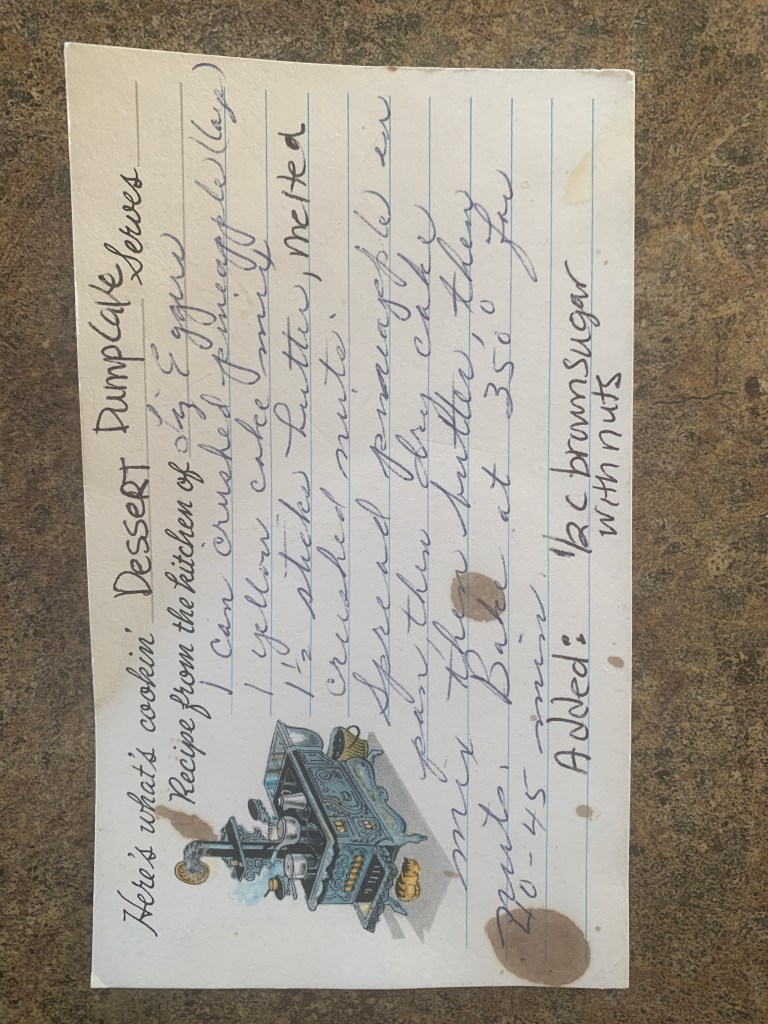 Here's what's cookin' Dessert Dump Cake Serves
Recipe from the kitchen of Liz Eggers
1 can crushed pineapple (lay)
1 yellow cake mix
1½ sticks butter, melted
crushed nuts.
Spread pineapple in
pan then dry cake
mix then butter, then
nuts. Bake at 350° for
40-45 min.
Added: 1/2 c brown sugar
with nuts